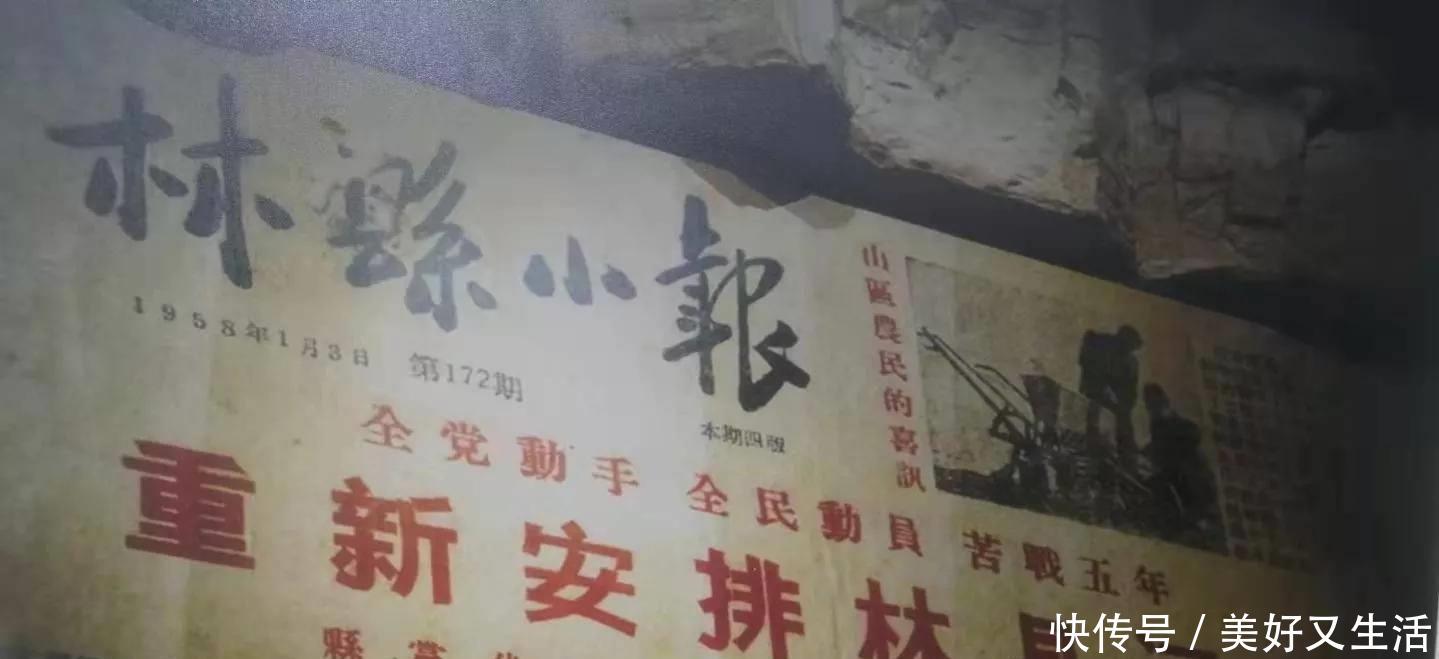 林縣小報
1958年1月3日 第172期
本期四版
山區農民的喜訊
全党動手 全民動員 苦戰五年
重新安排林
縣党代
快传号 / 美好又生活